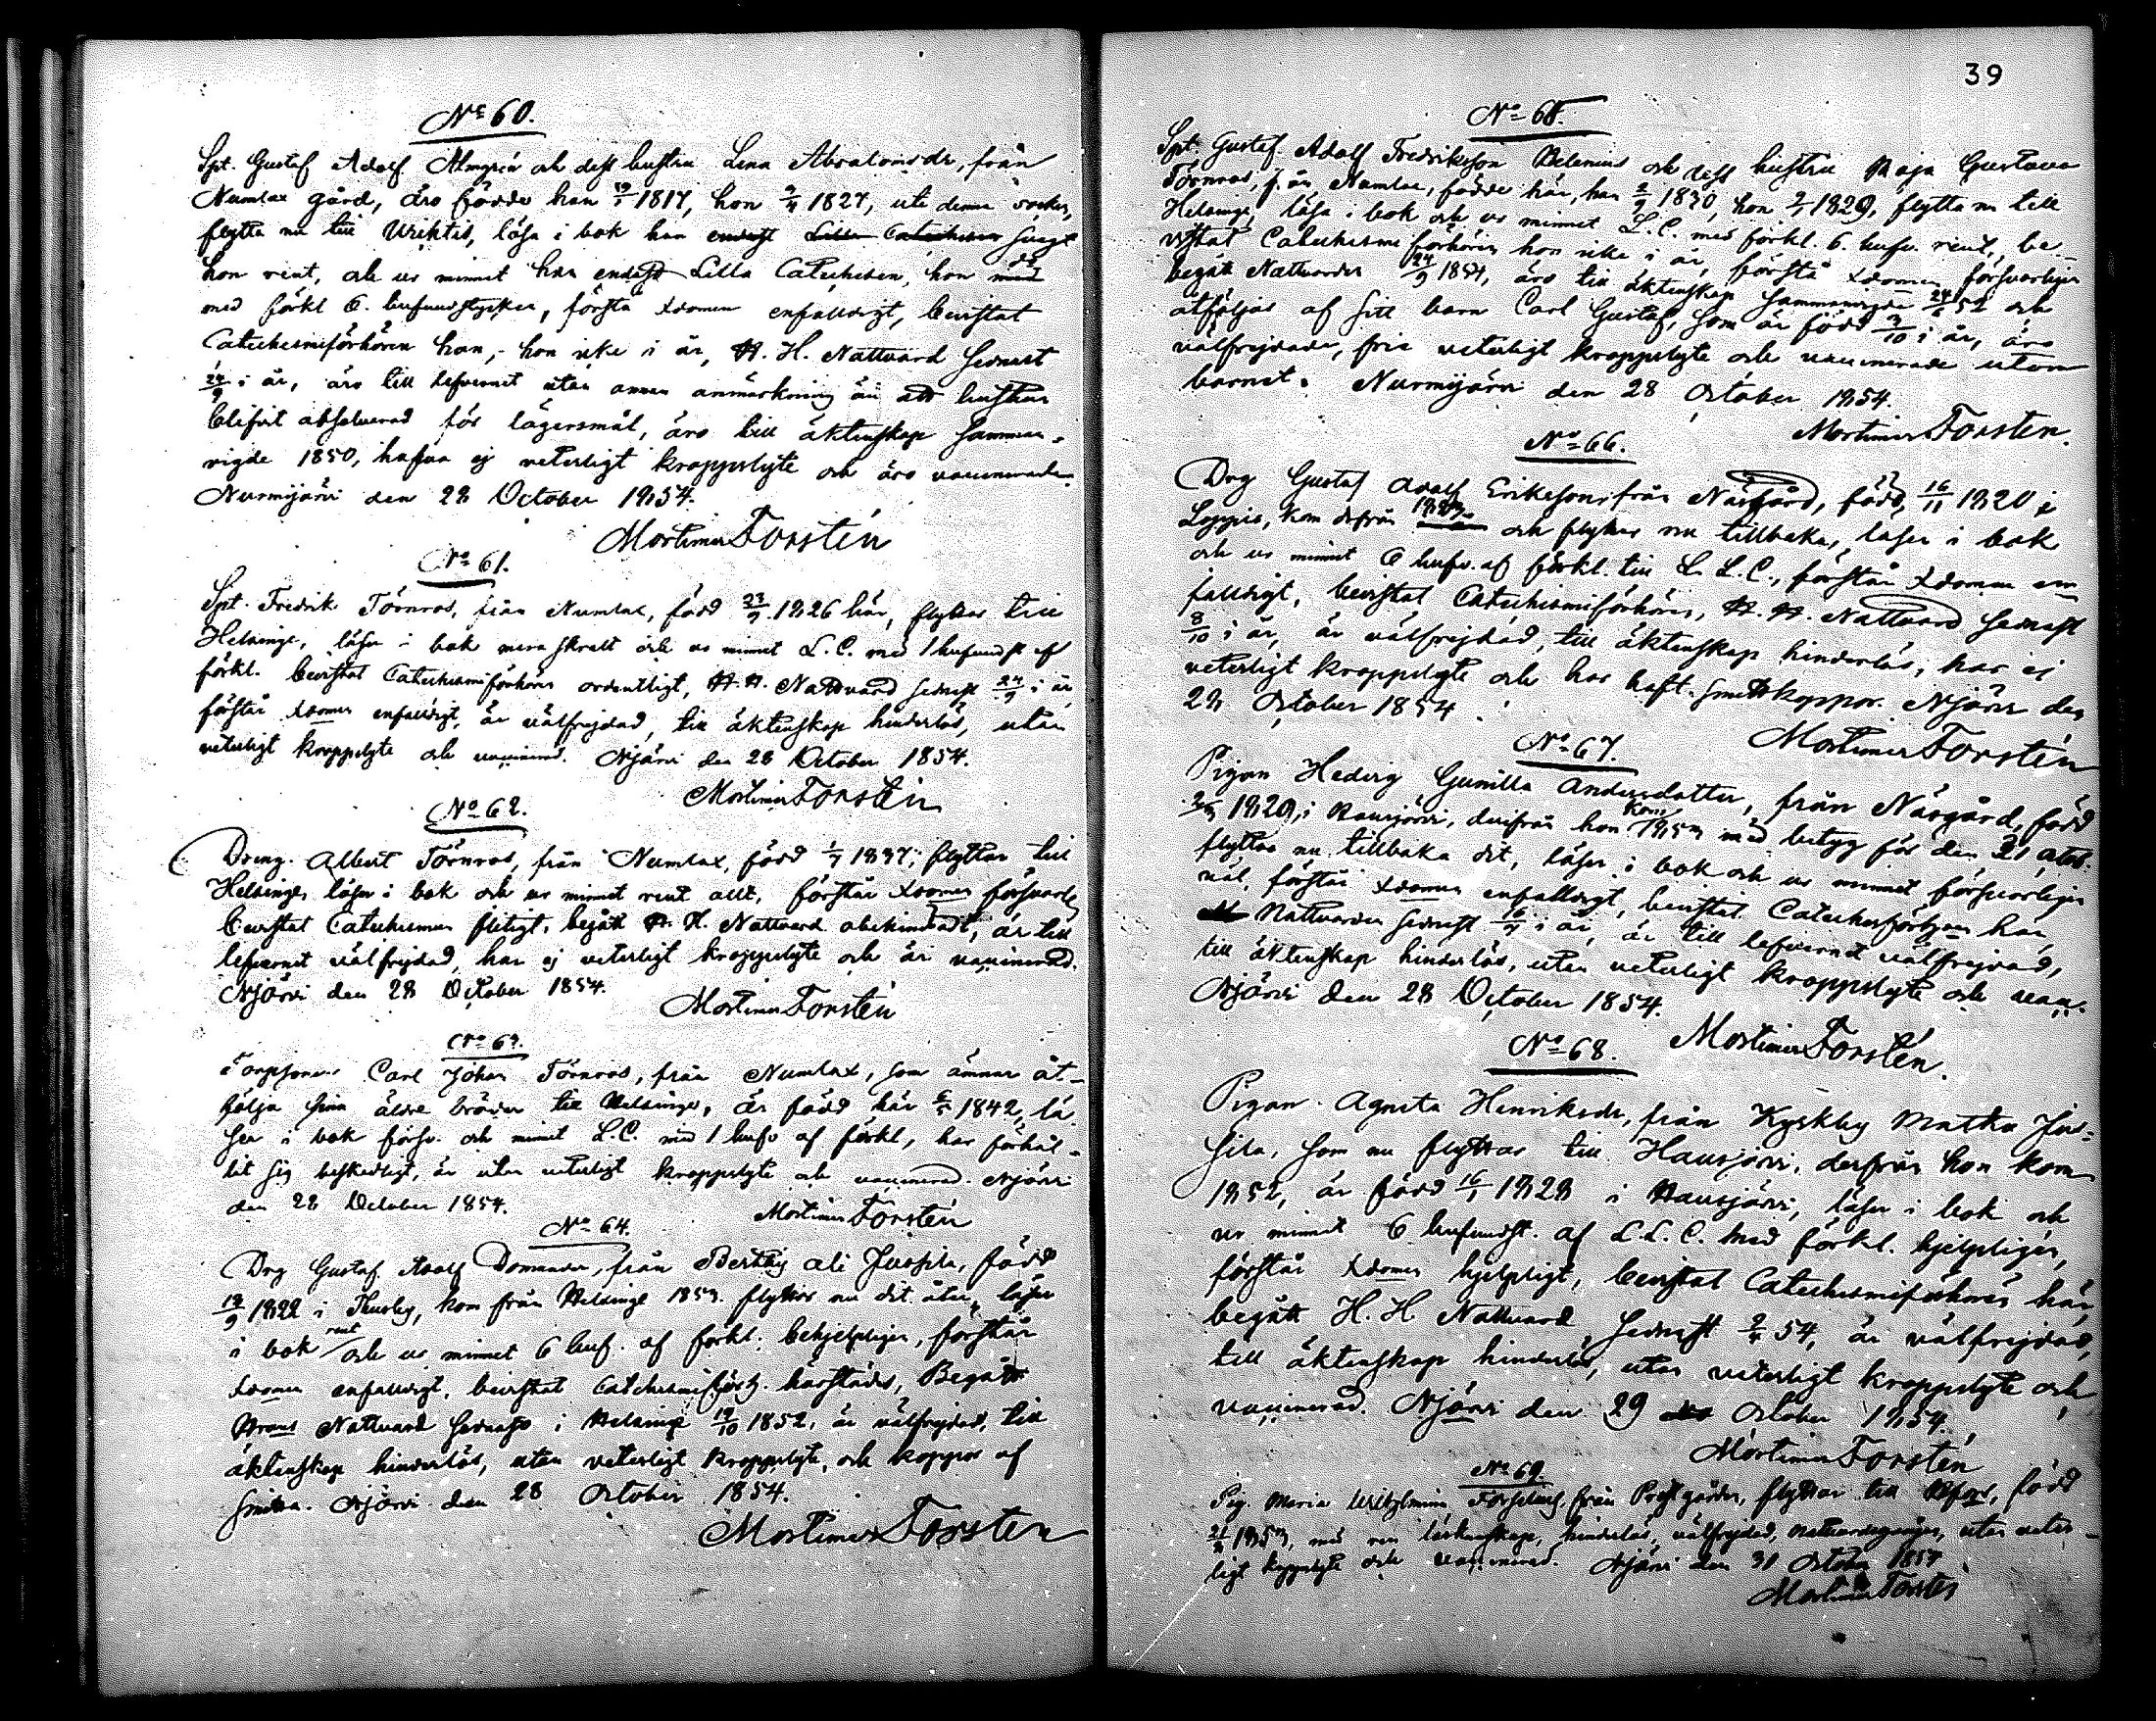 No 60.
Spt. Gustaf Adolf Almgrén och dess hustru Lena Absalomsdr, från
Numlax gård, äro födde han 19/5 1817, hon 2/4 1827, uti denna socken,
flytta nu till Wichtis, läsa i bok han endast Lilla Catechesen svagt
hon rent, och ur minnet han endast Lilla Catechesen, hon med
med förkl 6. hufvudstycken, förstå Xdomen enfalldigt, bevistat
Catechesmiförhören han, hon icke i år, H. H. Nattvard sednast
24/9 i år, äro till lefvernet utan annan anmärkning än att hustrun
blifvit absolverad för lägersmål, äro till äktenskap samman-
vigde 1850, hafva ej veterligt kroppslyte och äro vaccinerade.
Nurmijärvi den 28 October 1854.
Mortimer Forstén
No 61.
Spt. Fredrik Törnros, från Numlax, född 23/9 1826 här, flyttar till
Helsinge, läser i bok mera skralt och ur minnet L. C. med 1 hufvudst af
förkl. bevistat Catechismiförhören ordentligt, H. H. Nattvard sednast 24/9 i år,
förstår Xdomen enfaldigt, är välfrejdad, till äktenskap hinderlös, utan
veterligt kroppslyte och vaccinerad. Njärvi den 28 October 1854.
Mortimer Forstén
No 62.
Dreng. Albert Törnros, från Numlax, född 1/7 1837, flyttar till
Helsinge, läser i bok och ur minnet rent allt, förstår Xdomen försvarl.
bevistat Catechismen flitigt, begått H. H. Nattvard obehindradt, är till
lefvernet välfrejdad, har ej veterligt kroppslyte och är vaccinerad.
Njärvi den 28 October 1854.
Mortimer Forstén
No 63.
Torpsonen Carl Johan Törnros, från Numlax, som ämnar åt-
följa sina äldre bröder till Helsinge, är född här 6/5 1842, lä-
ser i bok försv. och minnet L.C. med 1 hufv af förkl, har förhål-
lit sig beskedligt, är utan veterligt kroppslyte och vaccinerad. Njärvi
den 28 October 1854.
Mortimer Forstén
No 64.
Drg Gustaf Adolf Domander, från Bertby ali Jussila, född
19/9 1822 i Thusby, kom från Helsinge 1853. flyttar nu dit åter, läser
i bok rent och ur minnet 6 huf. af förkl. behjelpligen, förstår
Xdomen enfalldigt, bevistat Catechismiförh. härstädes, Begått
Hrans Nattvard sednast i Helsinge 19/10 1852, är välfrejdad, till
äktenskap hinderlös, utan veterligt kroppslyte, och koppor af
smitta. Njärvi den 28 October 1854.
Mortimer Forstén
39
No 65.
Spt. Gustaf Adolf Fredriksson Helenius och dess hustru Maja Gustava
Törnros, från Numlax, födde här, han 2/9 1830, hon 2/7 1829, flytta nu till
Helsinge, läsa i bok och ur minnet L. C. med förkl. 6. hufv. rent, be-
vistat Catechismi förhören hon icke i år, förstå Xdomen försvarligen
begått Nattvarden 24/9 1854, äro till äktenskap sammanvigde 24/6 52 och
åtföljas af sitt barn Carl Gustaf, som är född 3/10 i år, äro
välfrejdade, fria veterligt kroppslyte och vaccinerade utom
barnet. Nurmijärvi den 28 October 1854.
Mortimer Forstén.
No 66.
Drg Gustaf Adolf Eriksson från Näsgård, född 16/11 1820 i
Loppis, kom derfrån och flyttar nu tillbaka, läser i bok
och ur minnet 6 hufv. af förkl. till L. C., förstår Xdomen en-
falldigt, bevistat Catechismiförhören, H. H. Nattvard sednast
8/10 i år, är välfrejdad, till äktenskap hinderlös, har ej
veterligt kroppslyte och har haft smittkoppor. Njärvi den
28 October 1854
Mortimer Forstén
No 67.
Pigan Hedvig Gunilla Andersdotter, från Näsgård, född
1829, i Hausjärvi, derifrån hon kom 1853 med betyg för den 21 octob.
flyttar nu tillbaka dit, läser i bok och ur minnet försvarligen
väl, förstår Xdomen enfalldigt, bevistat Catechesförhören här,
Nattvarden sednast 16/7 i år, är till lefvernet välfrejdad,
till äktenskap hinderlös, utan veterligt kroppslyte och vacc.
Njärvi den 28 October 1854.
Mortimer Forstén.
No 68.
Pigan Agneta Henriksdr, från Kyrkby Matku Jus-
sila, som nu flyttar till Hausjärvi, derfrån hon kom
1852, är född 16/1 1828 i Hausjärvi, läser i bok och
ur minnet 6 hufvudst. af L. L. C. med förkl. hjelpligen,
förstår Xdomen hjelpligt, bevistat Catechismiförhören här,
begått H. H. Nattvard sednast 54, är välfrejdad,
till äktenskap hinderlös, utan veterligt kroppslyte och
vaccinerad. Njärvi den 29 October 1854.
Mortimer Forstén
No 69.
Pig. Maria Wilhelmina från Prestgården, flyttar till Hfors, född
med ren hinderlös, välfrejdad, nattvardsgången, utan veter-
ligt kroppslyte och vaccinerad. Njärvi den 31 October 1854
Mortimer Forstén